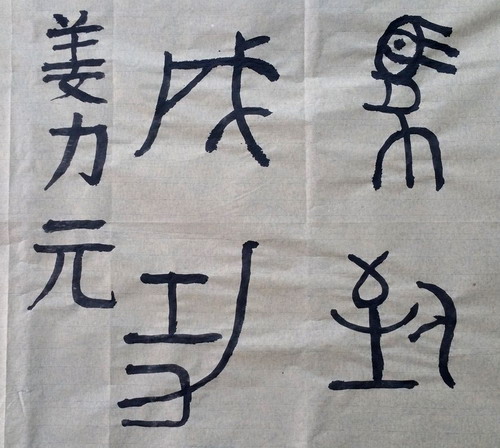 馬到
成功
姜力元